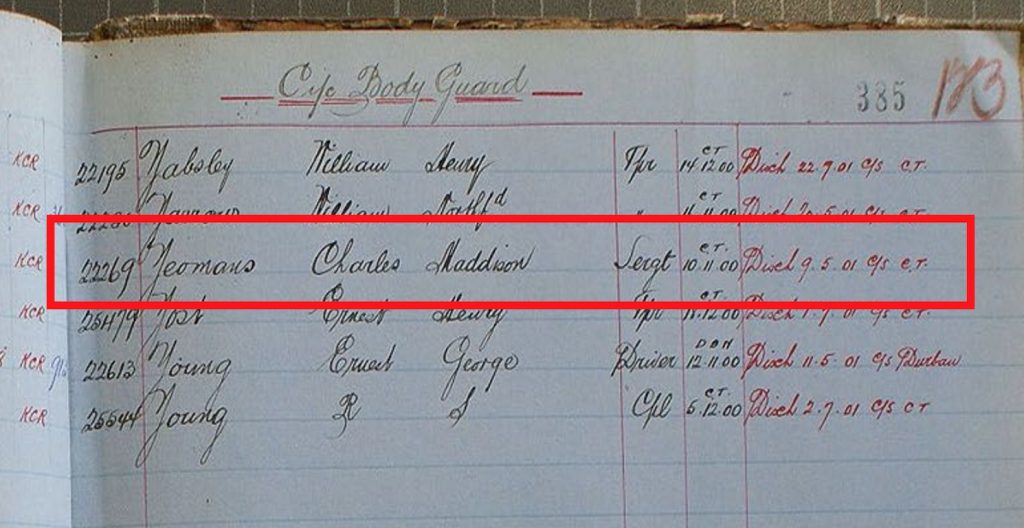 C-i-c Body Guard 385 183
KCR 22195 Yabsley William Henry Tpr C.T. 14.12.00 Disch 22.7.01 C/S C.T.
KCR William Northf'd " C.T. 11.11.00 C/S C.T.
KCR 22269 Yeomans Charles Maddison Sergt C.T. 10.11.00 Disch 9.5.01 C/S C.T.
KCR 25479 Yost Ernest Henry Tpr C.T. 12.00 Disch 7.01 C/S C.T.
KCR 22613 Young Ernest George Driver DBN 12.11.00 Disch 11.5.01 C/S Durban
KCR 25544 Young R S Cpl C.T. 5.12.00 Disch 2.7.01 C/S C T